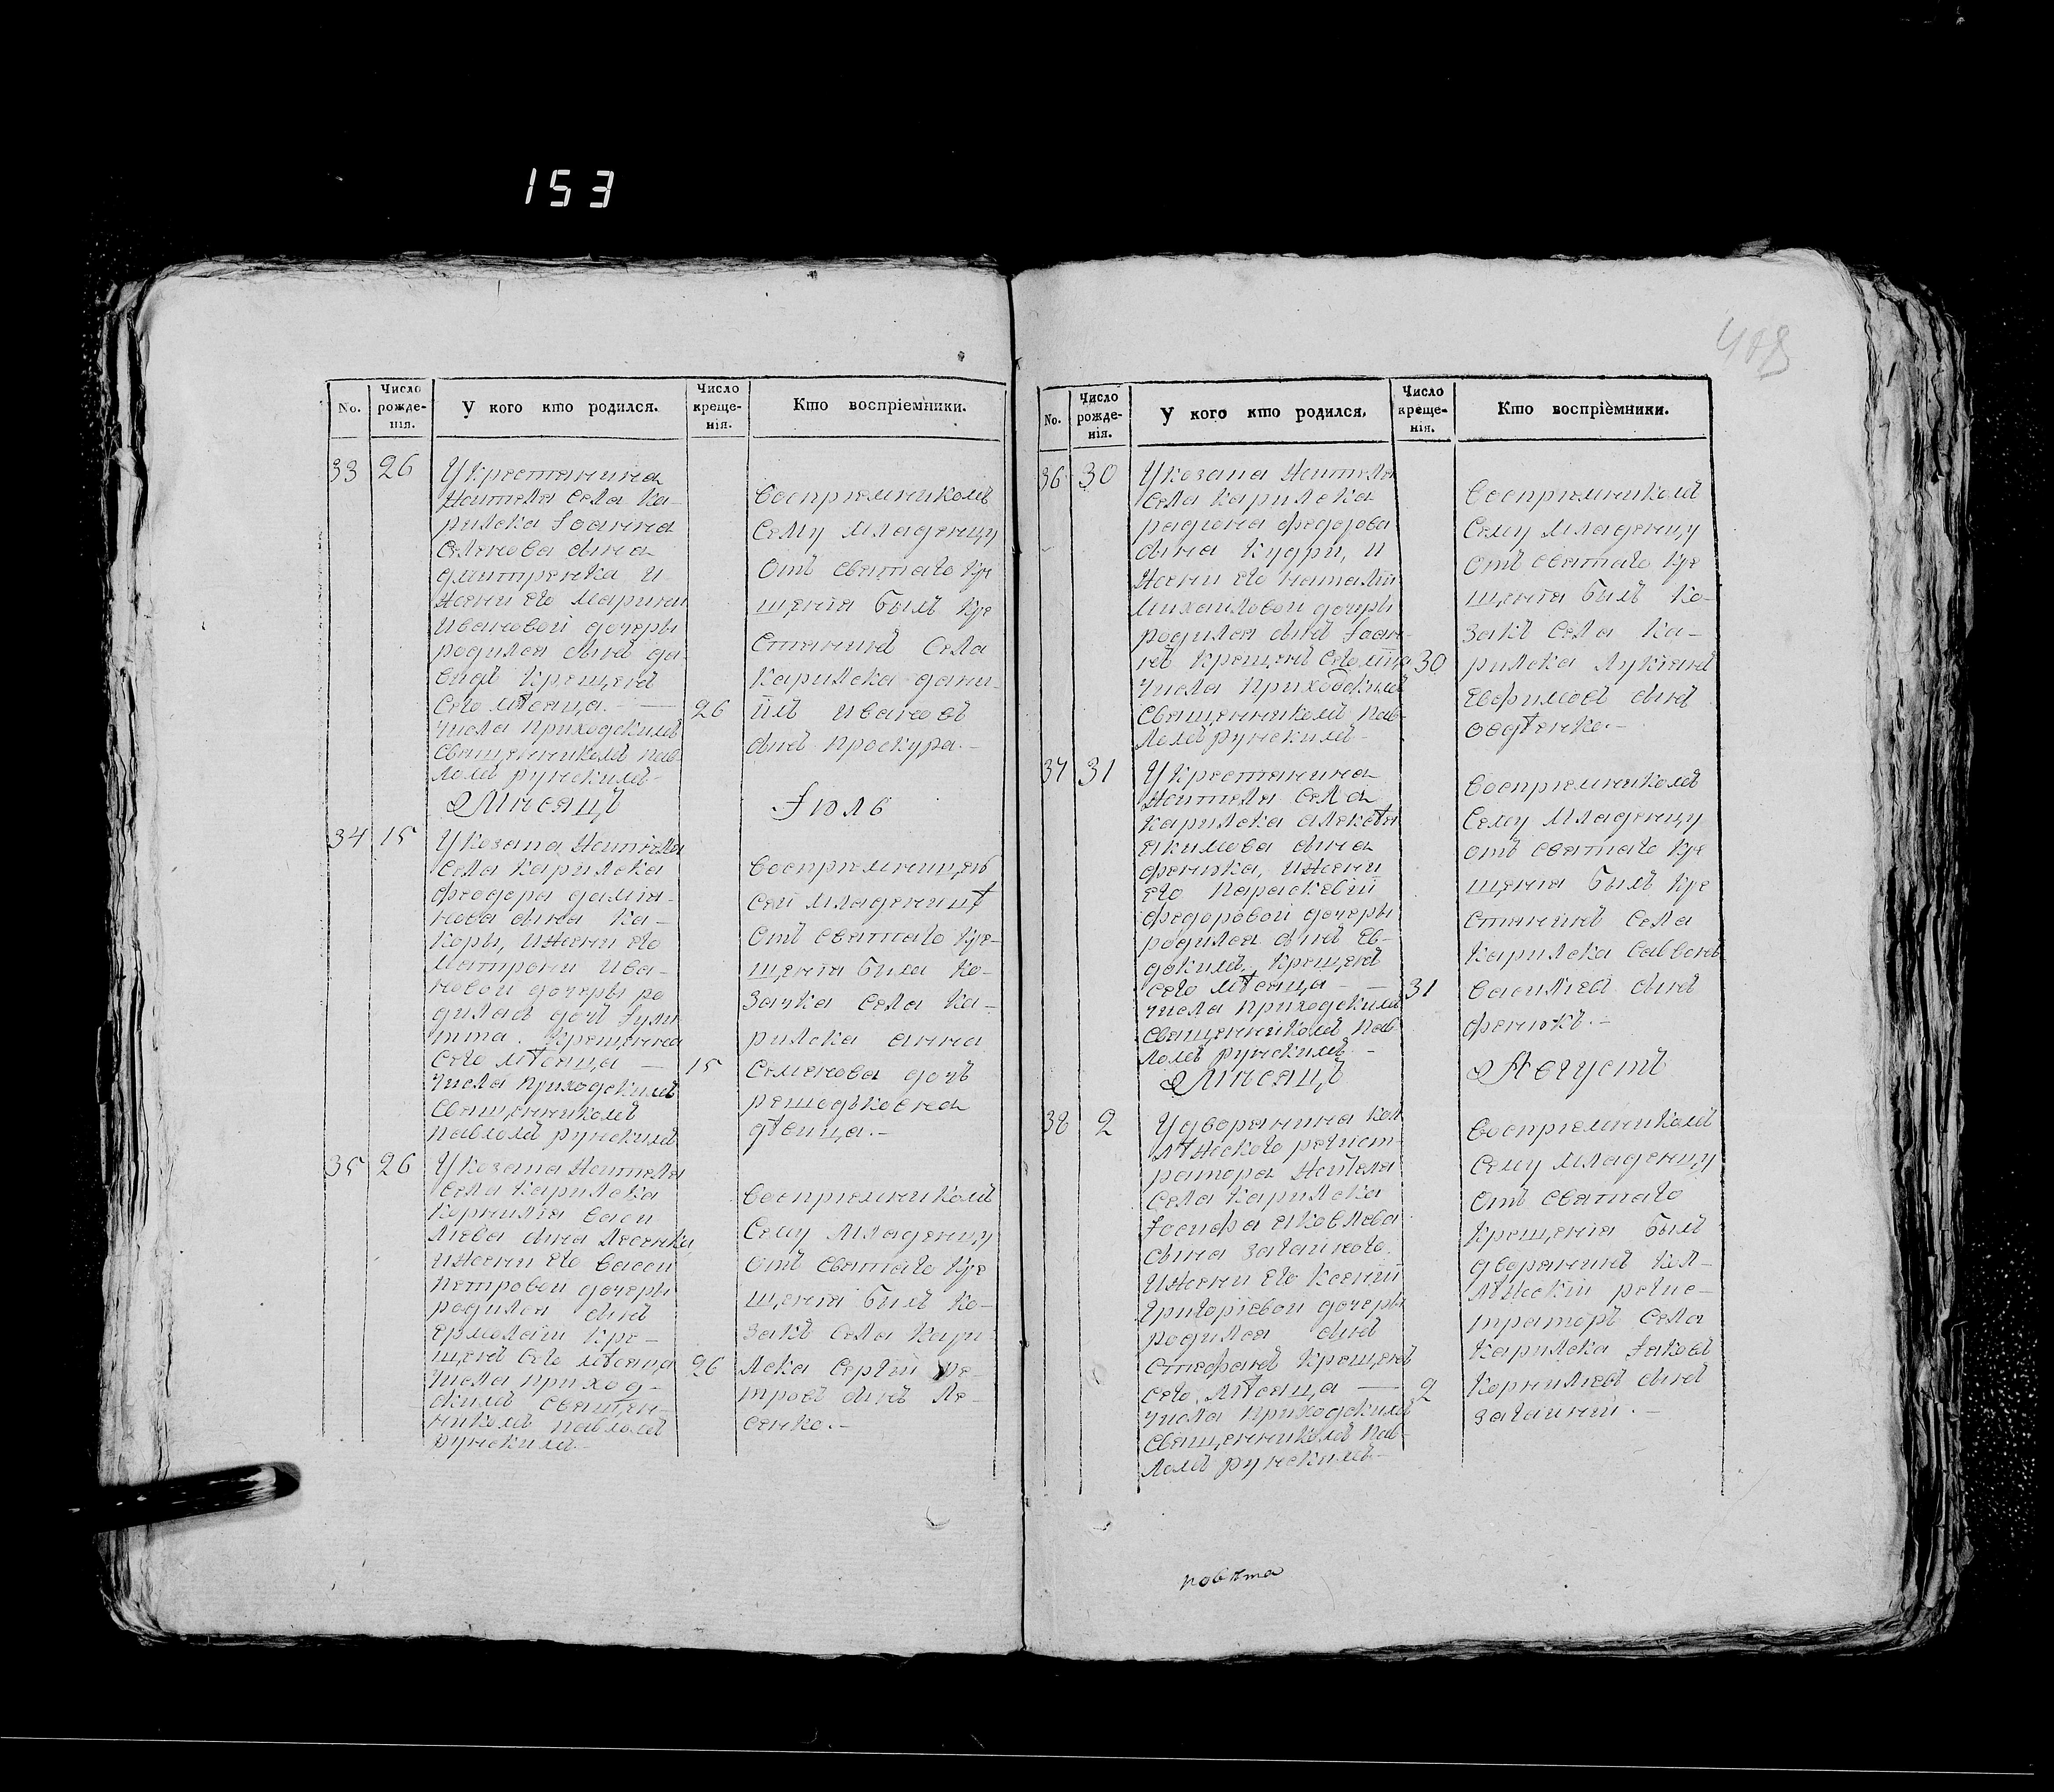 153
418
No.
Число рожде-нія.
У кого кто родился.
Число креще-нія.
Кто воспріемники.
33
26
У крестянина
жителя села Ка-
рилска Іоанна
Семенова сына
дмитренка и
жени его марины
Ивановой дочеры
родился сынъ да-
видъ крещенъ
сего мѣсяца. —
26
числа приходскимъ
священникомъ пав-
ломъ рунскимъ —
воспріемникомъ
сему младенцу
отъ святаго кре
щенія былъ кре
стянинъ села
карилска дани-
илъ ивановъ
сынъ проскура. —
Мѣсяцъ
Іюль
34
15
У козака жителя
села карилска
феодора даміа-
нова сына ка-
коры, и жени его
матроны ива-
новой дочеры ро
дилась дочь Іули
тта. крещенна
сего мѣсяца —
15
числа приходскимъ
священникомъ
павломъ рунскимъ
воспріемницею
сей младеницѣ
отъ святаго кре-
щенія была ко-
зачка села ка-
рилска анна
Семенова дочь
решодковна
дѣвица. —
35
26
У козака жителя
села карилска
корнилія васи
лева сына лесенка
и жени его васси
петровой дочеры
родился сынъ
ермолаій кре-
щенъ сего мѣсяца
26
числа приход-
скимъ священ-
никомъ павломъ
рунскимъ —
воспріемникомъ
сему младенцу
отъ святаго кре
щенія былъ ко-
закъ села кари-
лска Сергій пе-
тровъ сынъ ле-
сенко. —
No.
Число рожде-нія.
У кого кто родился.
Число креще-нія.
Кто воспріемники.
36
30
У козака жителя
села карилска
радиона федорова
сына кудри, и
жени его наталіи
михаиловой дочеры
родился сынъ Іоан-
нъ крещенъ сего мѣсяца
30
числа приходскимъ
священникомъ пав-
ломъ рунскимъ —
воспріемникомъ
сему младенцу
отъ святаго кре
щенія былъ ко-
закъ села ка-
рилска лукіянъ
евфимовъ сынъ
овдѣенко. —
37
31
У крестянина
жителя села
карилска алексѣя
екимова сына
фенюка, и жени
его параскевіи
федоровой дочеры
родился сынъ ев-
докимъ. крещенъ
сего мѣсяца —
31
числа приходскимъ
священникомъ пав
ломъ рунскимъ —
воспріемникомъ
сему младенцу
отъ святаго кре
щенія былъ кре
стянинъ села
карилска савва
василіевъ сынъ
фенюкъ. —
Мѣсяцъ
Августъ
38
2
У дворянина кол
лѣжского регист-
ратора жителя
села карилска
Іосифа яковлева
сына загайного
и жени его ксеніи
григоріевой дочеры
родился сынъ
стефанъ крещенъ
сего мѣсяца —
2
числа приходскимъ
священникомъ пав-
ломъ рунскимъ —
воспріемникомъ
сему младенцу
отъ святаго
крещенія былъ
дворянинъ кол-
лѣжскій регис-
траторъ села
карилска Іаковъ
корниліевъ сынъ
загайній. —
повѣта